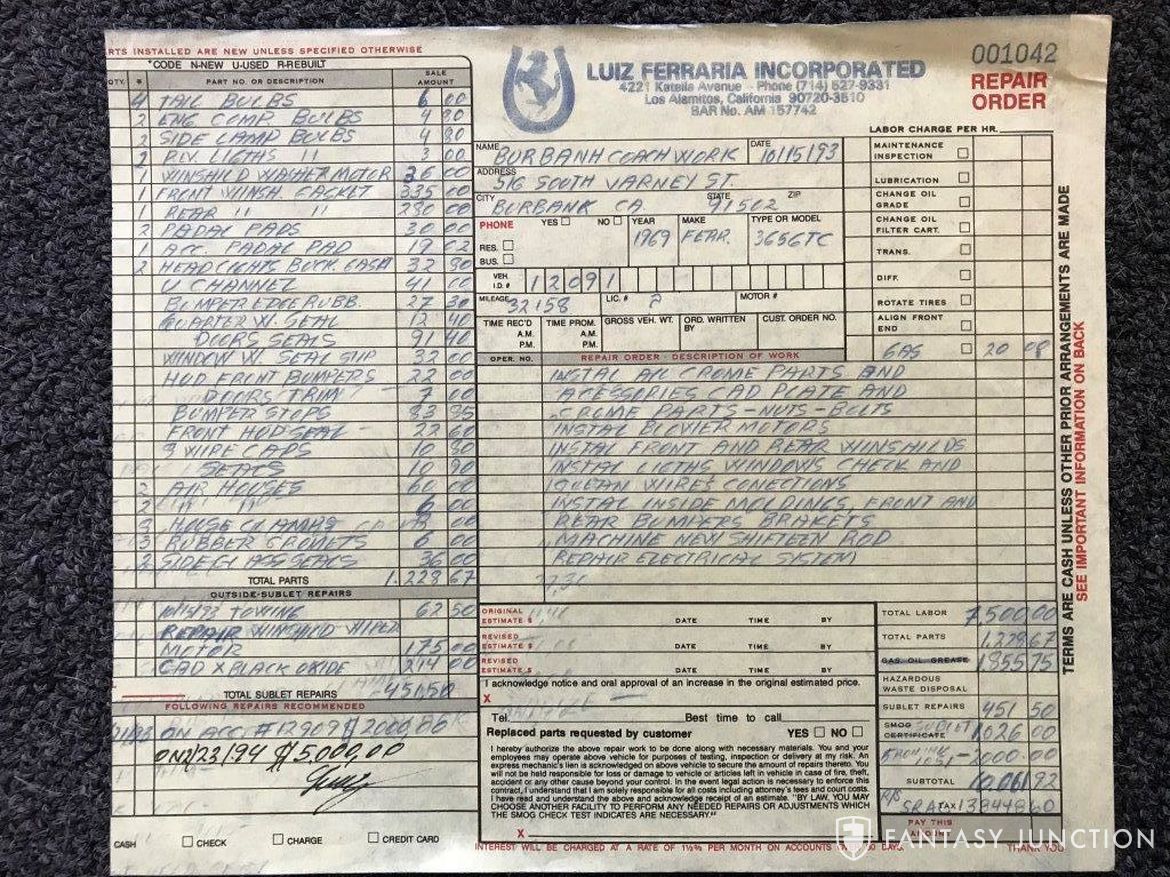 001042
LUIZ FERRARIA INCORPORATED
4221 Katella Avenue - Phone (714) 527-9331
Los Alamitos, California 90720-3510
BAR No. AM 157742
REPAIR
ORDER
PARTS INSTALLED ARE NEW UNLESS SPECIFIED OTHERWISE
*CODE N-NEW U-USED R-REBUILT
QTY. * PART NO. OR DESCRIPTION SALE AMOUNT
4 TAIL BULBS 6 00
2 ENG COMP. BULBS 4 80
2 SIDE LAMP BULBS 4 80
2 LIGTHS " 3 00
1 WINSHILD WASHER MOTOR 26 00
1 FRONT WINSH. GASKET 335 00
1 REAR " " 280 00
2 PADAL PADS 30 00
1 ACC. PADAL PAD 19 02
2 HEADLIGHTS BUCK. GASK 32 80
U CHANNEL 41 00
BUMPER EDGE RUBB. 27 30
QUARTER W. SEAL 12 40
DOORS SEALS 91 40
WINDOW W. SEAL SLIP 32 00
HUD FRONT BUMPERS 22 00
DOORS TRIM 7 00
BUMPER STOPS 83 85
FRONT HOD SEAL 22 60
3 WIPE CAPS 10 80
SEALS 10 90
2 AIR HOUSES 60 00
2 " " 6 00
HOUSE CLAMPS
3 RUBBER GROMETS 6 00
2 SIDE GLASS SEALS 36 00
TOTAL PARTS 1.228 67
OUTSIDE-SUBLET REPAIRS
10/15/93 TOWING 62 50
REPAIR WINSHILD WIPER
MOTOR 175 00
CAD X BLACK OXIDE 214 00
TOTAL SUBLET REPAIRS 451.50
FOLLOWING REPAIRS RECOMMENDED
ON ACC # 12909 $ 2000,00
ON 2/23/94 $ 5.000,00
CASH CHECK CHARGE CREDIT CARD
NAME BURBANH COACH WORK DATE 10/15/93
ADDRESS 516 SOUTH VARNEY ST
CITY BURBANK CA. STATE 91502 ZIP
PHONE YES NO YEAR MAKE TYPE OR MODEL
RES. 1969 FERR. 365GTC
BUS.
VEH. I.D.# 12091
MILEAGE 32158 LIC. # ? MOTOR #
TIME REC'D A.M. P.M. TIME PROM. A.M. P.M. GROSS VEH. WT. ORD. WRITTEN BY CUST. ORDER NO.
OPER. NO. REPAIR ORDER - DESCRIPTION OF WORK
INSTAL ALL CROME PARTS AND
ACESSORIES CAD PLATE AND
CROME PARTS - NUTS - BOLTS
INSTAL BLOVIER MOTORS
INSTAL FRONT AND REAR WINSHILDS
INSTAL LIGTHS WINDOWS CHECK AND
CLEAN WIRES CONECTIONS
INSTAL INSIDE MOLDINGS, FRONT AND
REAR BUMPERS BRAKETS
MACHINE NEW SHIFTEN ROD
REPAIR ELECTRICAL SYSTEM
LABOR CHARGE PER HR.
MAINTENANCE INSPECTION
LUBRICATION
CHANGE OIL GRADE
CHANGE OIL FILTER CART.
TRANS.
DIFF.
ROTATE TIRES
ALIGN FRONT END
GAS 20 08
TERMS ARE CASH UNLESS OTHER PRIOR ARRANGEMENTS ARE MADE
SEE IMPORTANT INFORMATION ON BACK
ORIGINAL ESTIMATE $ DATE TIME BY
REVISED ESTIMATE $ DATE TIME BY
REVISED ESTIMATE $ DATE TIME BY
I acknowledge notice and oral approval of an increase in the original estimated price.
X
Tel. Best time to call
Replaced parts requested by customer YES NO
I hereby authorize the above repair work to be done along with necessary materials. You and your
employees may operate above vehicle for purposes of testing, inspection or delivery at my risk. An
express mechanic's lien is acknowledged on above vehicle to secure the amount of repairs thereto. You
will not be held responsible for loss or damage to vehicle or articles left in vehicle in case of fire, theft,
accident or any other cause beyond your control. In the event legal action is necessary to enforce this
contract, I understand that I am solely responsible for all costs including attorney's fees and court costs.
I have read and understand the above and acknowledge receipt of an estimate. "BY LAW, YOU MAY
CHOOSE ANOTHER FACILITY TO PERFORM ANY NEEDED REPAIRS OR ADJUSTMENTS WHICH
THE SMOG CHECK TEST INDICATES ARE NECESSARY."
X
INTEREST WILL BE CHARGED AT A RATE OF 1½% PER MONTH ON ACCOUNTS DAYS.
TOTAL LABOR 7,500,00
TOTAL PARTS 1,228 67
GAS, OIL, GREASE 1855,75
HAZARDOUS WASTE DISPOSAL
SUBLET REPAIRS 451 50
SMOG CERTIFICATE SUBLET 1,026 00
2000 00
SUBTOTAL 10,061 92
TAX
PAY THIS AMOUNT
THANK YOU
FANTASY JUNCTION